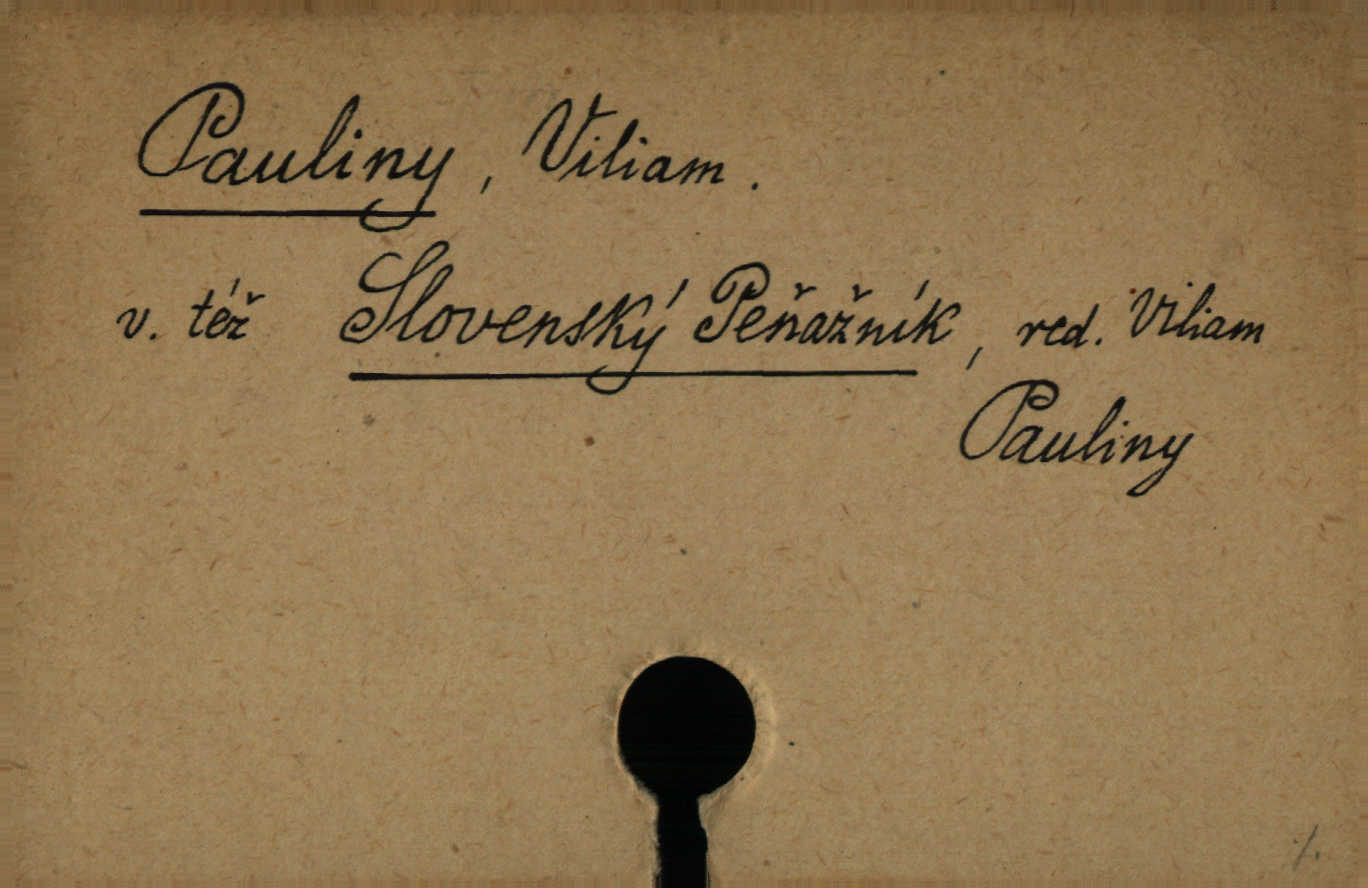 Pauliny, Viliam.
v. též Slovenský Peňažník, red. Viliam
Pauliny